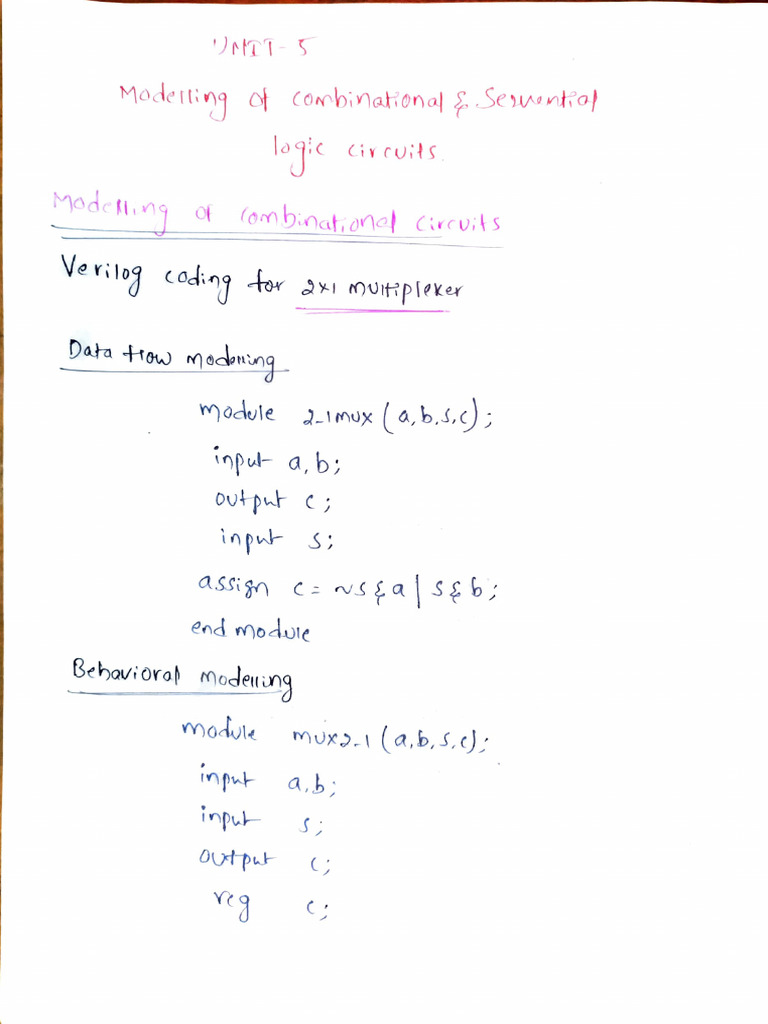 UNIT-5
Modelling of combinational & Sequential
logic circuits.
Modelling of combinational circuits
Verilog coding for 2x1 multiplexer
Data flow modelling
module 2-1mux (a,b,s,c);
input a,b;
output c;
input s;
assign c= ~s&a | s&b;
end module
Behavioral modelling
module mux2-1 (a,b,s,c);
input a,b;
input s;
output c;
reg c;